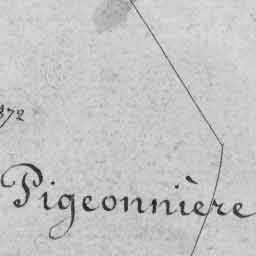 872
Pigeonnière